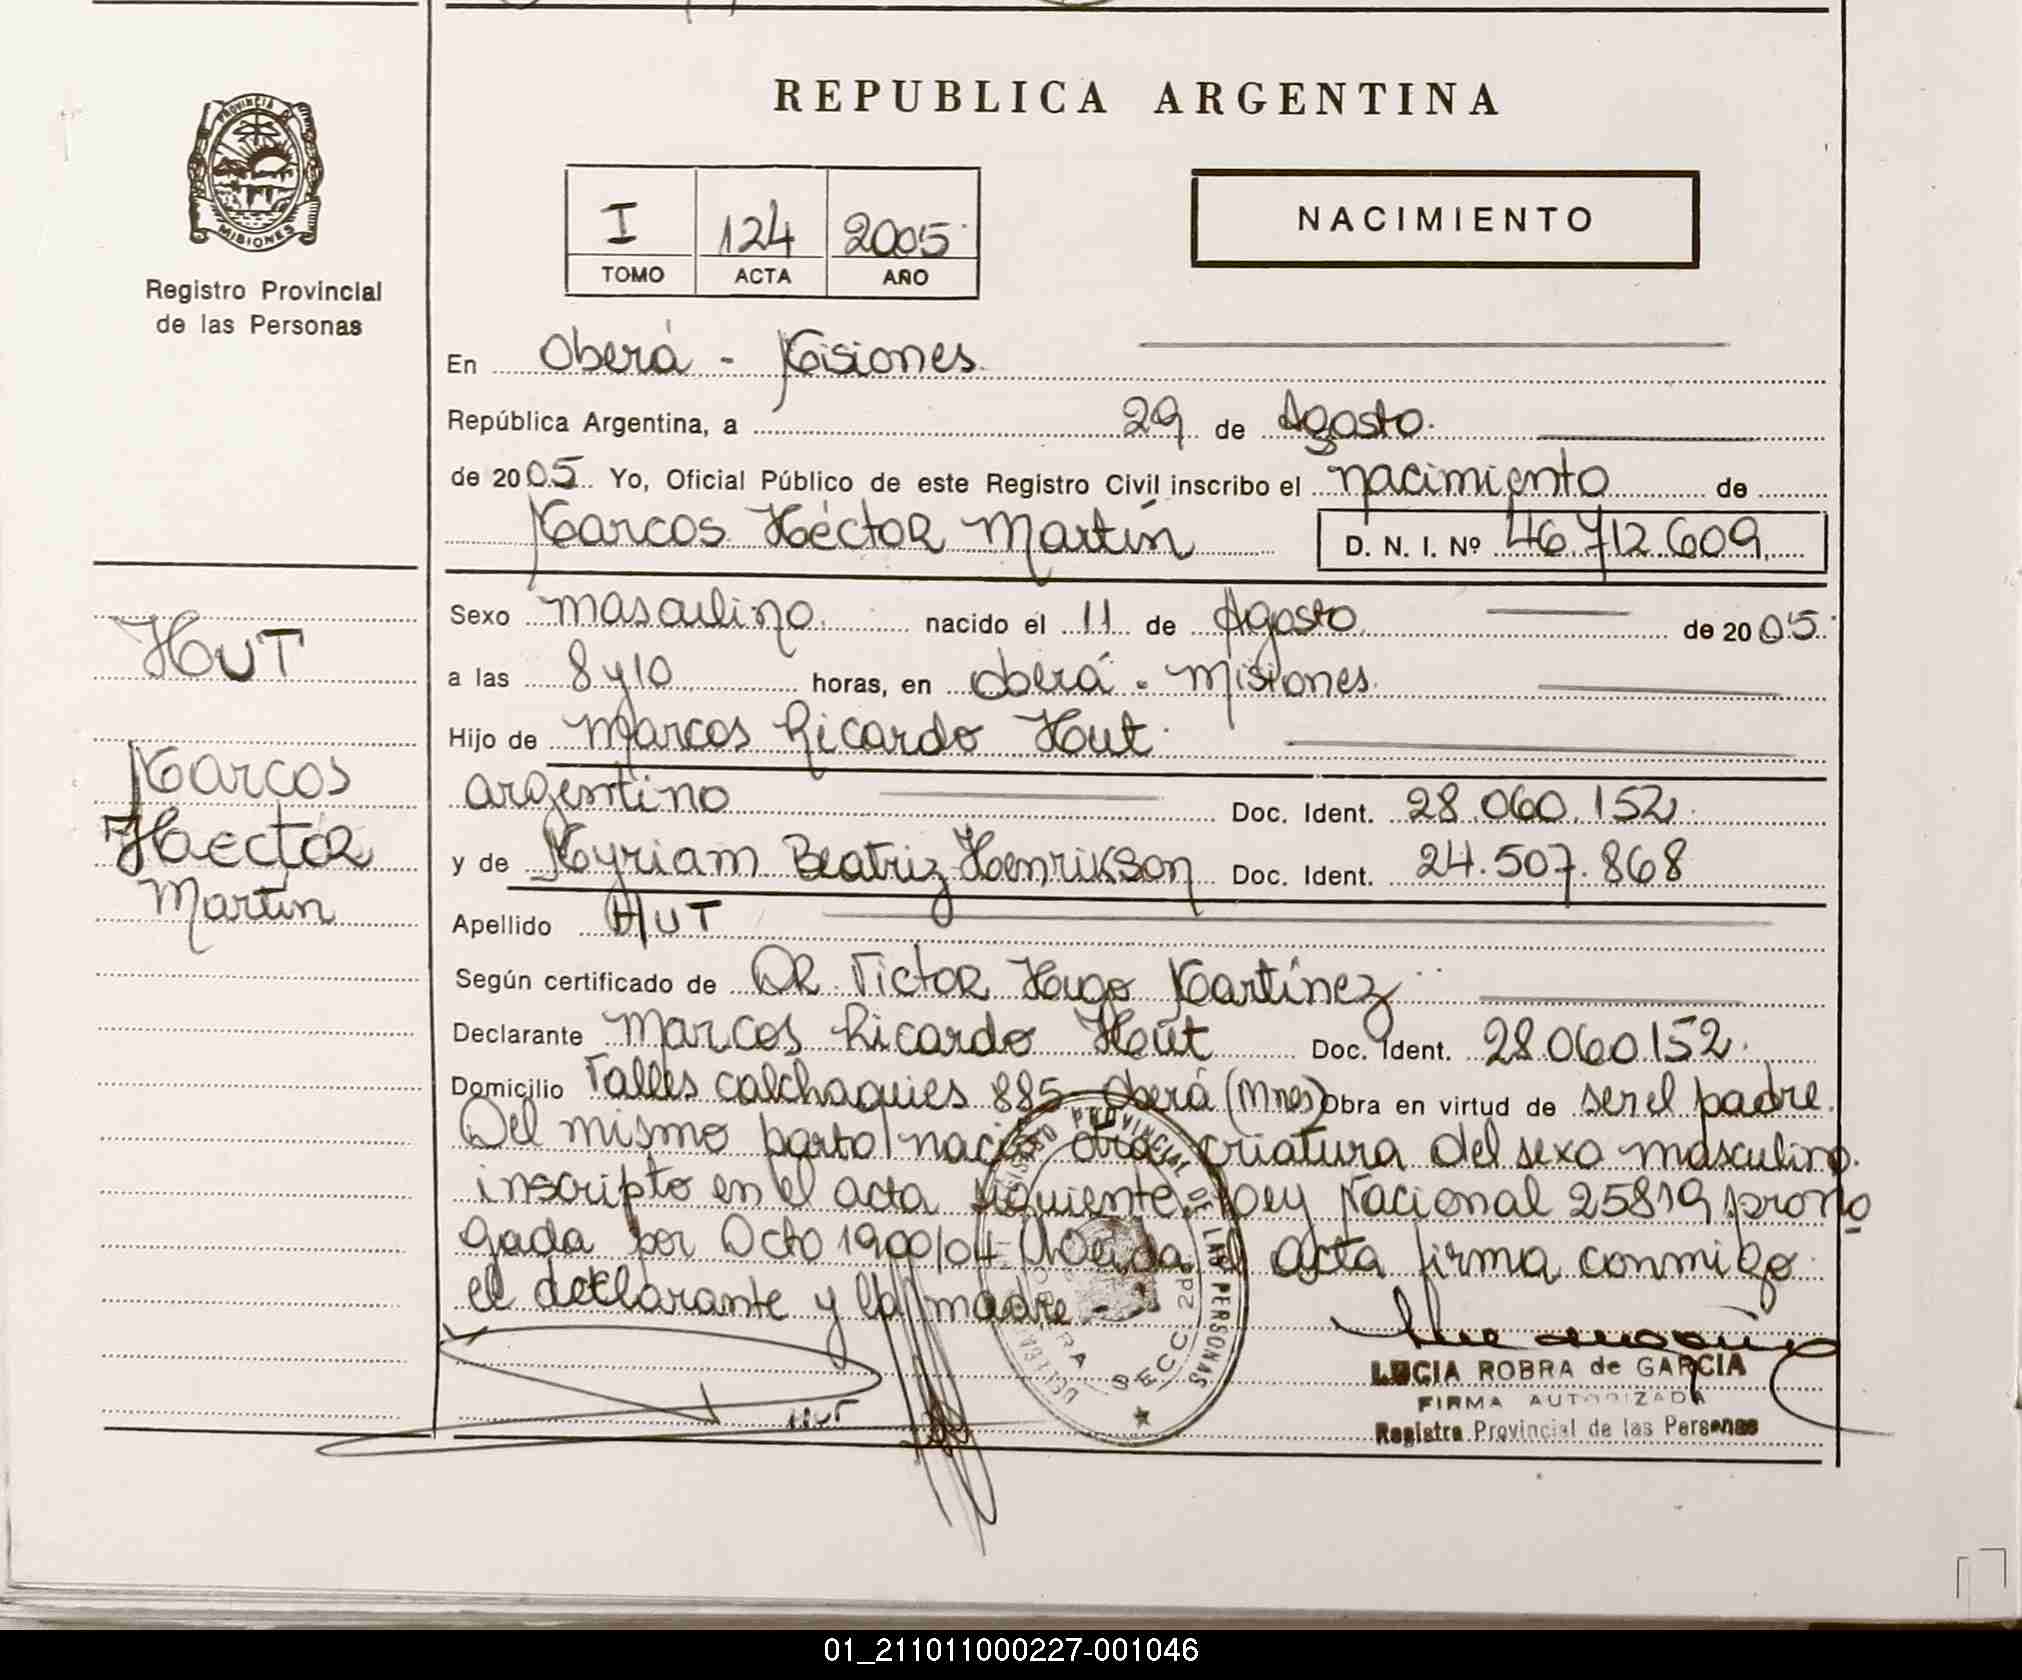 REPUBLICA ARGENTINA
PROVINCIA DE
MISIONES
Registro Provincial
de las Personas
I 124 2005
TOMO ACTA AÑO
NACIMIENTO
En Oberá - Misiones
República Argentina, a 29 de Agosto.
de 2005. Yo, Oficial Público de este Registro Civil inscribo el nacimiento de
Marcos Héctor Martín D. N. I. Nº 46.712.609
Sexo masculino. nacido el 11 de Agosto de 2005.
a las 8 y 10 horas, en Oberá - Misiones.
Hijo de Marcos Ricardo Hut
argentino Doc. Ident. 28.060.152
y de Myriam Beatriz Henrikson Doc. Ident. 24.507.868
Apellido HUT
Según certificado de DR. Victor Hugo Martínez
Declarante Marcos Ricardo Hut Doc. Ident. 28.060.152.
Domicilio Valles calchaquies 885 Oberá (Mnes) Obra en virtud de ser el padre.
Del mismo parto nació otra criatura del sexo masculino.
inscripto en el acta siguiente. Ley Nacional 25819 prorro
gada por Dcto 1900/04 Leida el acta firma conmigo
el declarante y la madre - -
HUT
Marcos
Haector
Martín
HUT
REGISTRO PROVINCIAL DE LAS PERSONAS
SECC. 2da
LUCIA ROBRA de GARCIA
FIRMA AUTORIZADA
Registro Provincial de las Personas
01_211011000227-001046